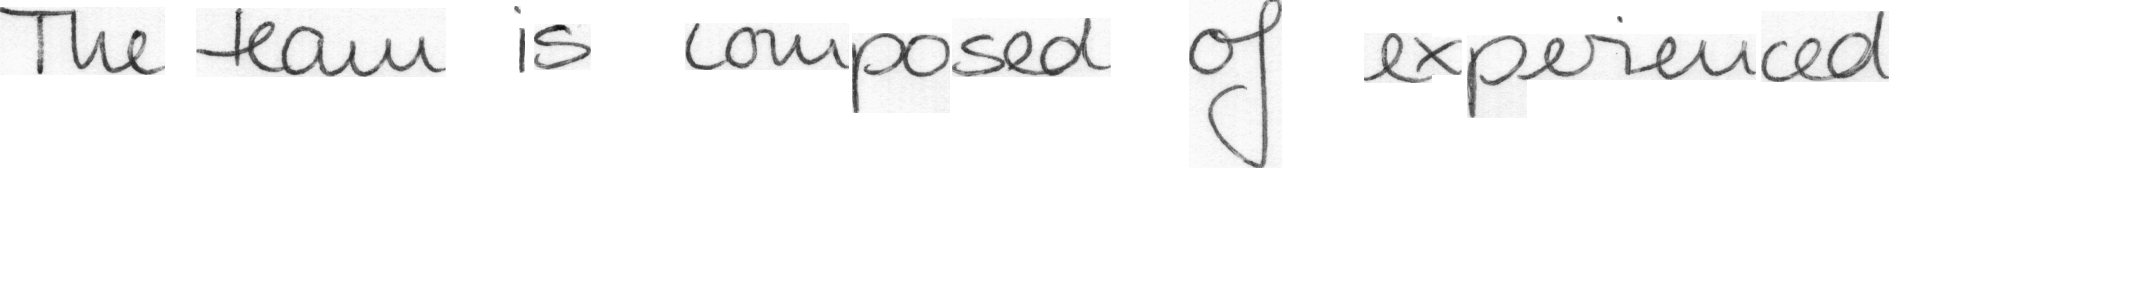 The team is composed of experienced